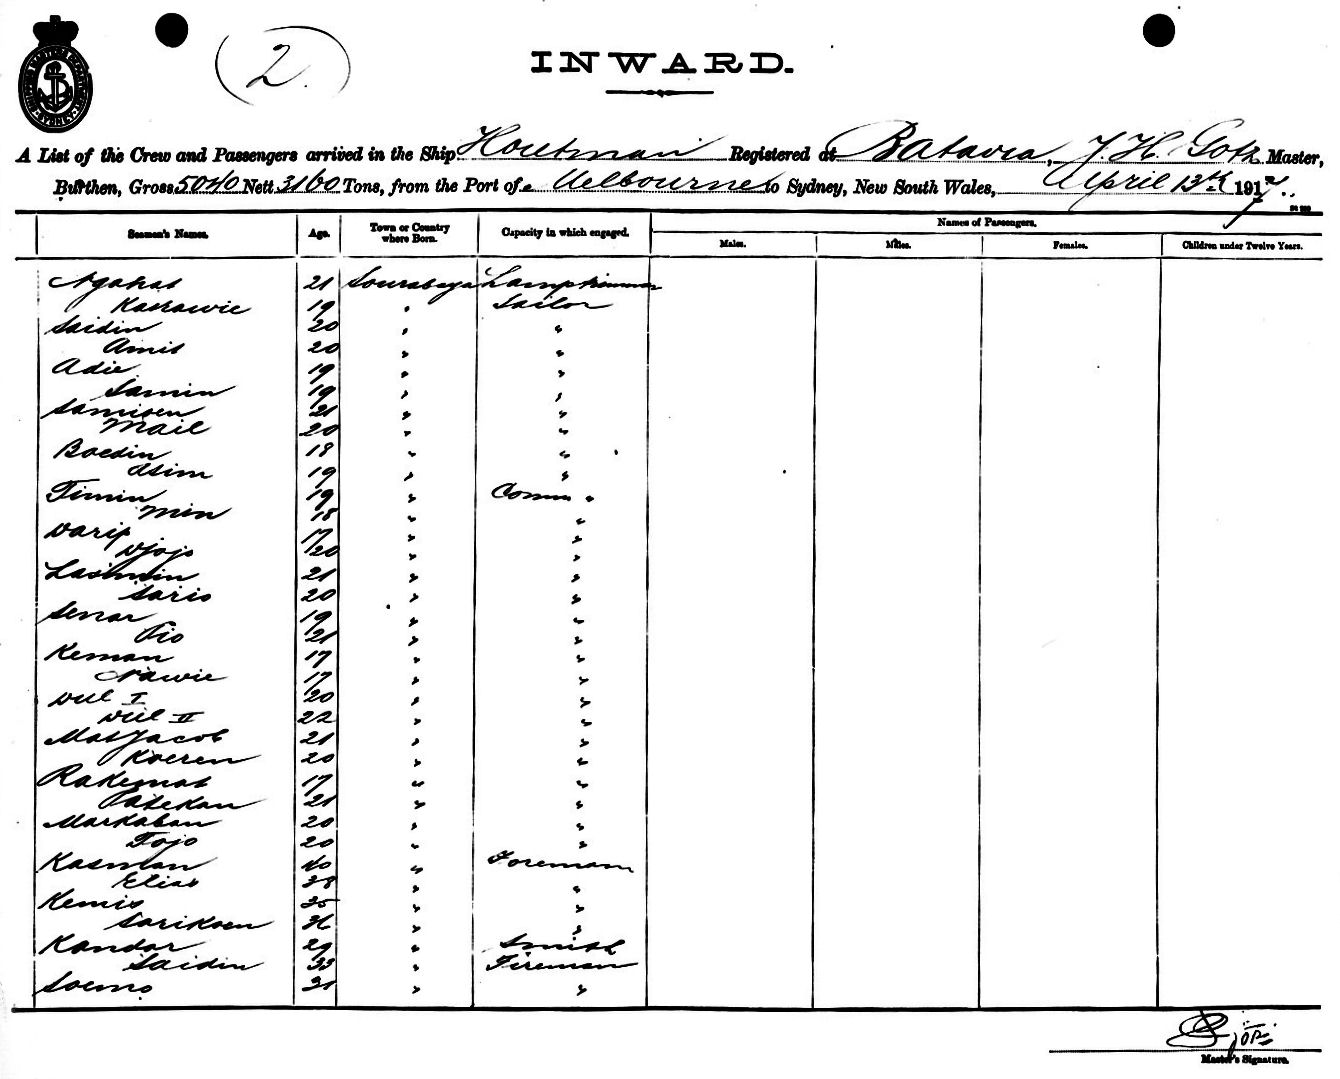 2.
INWARD.
A List of the Crew and Passengers arrived in the Ship Houtman Registered at Batavia, J. H. Gotz Master,
Burthen, Gross 5040 Nett 3160 Tons, from the Port of Melbourne to Sydney, New South Wales, April 13th 1917
Seamen's Names. Age. Town or Country where Born. Capacity in which engaged. Names of Passengers.
Males. Males. Females. Children under Twelve Years.
21 Sourabaya Lamptrimmer
Kasrawie 19 " Sailor
Saidin 20 " "
Amit 20 " "
Adie 19 " "
Samin 19 " "
Samioen 21 " "
Mail 20 " "
Boedin 18 " "
Asim 19 " "
Timin 19 " Comm "
Min 18 " "
Darip 17 " "
Djojo 20 " "
Lasimin 21 " "
Saris 20 " "
Senar 19 " "
Tio 21 " "
Keman 17 " "
Nawie 17 " "
Dul I 20 " "
Dul II 22 " "
Matjacob 21 " "
Koeren 20 " "
Rakemat 17 " "
Patekan 21 " "
Markaban 20 " "
Tojo 20 " "
Kasman 40 " Foreman
Elias 38 " "
Kemis 35 " "
Sarikoen 36 " "
Kandar 29 " Smith
Saidin 33 " Fireman
Soemo 31 " "
Master's Signature.